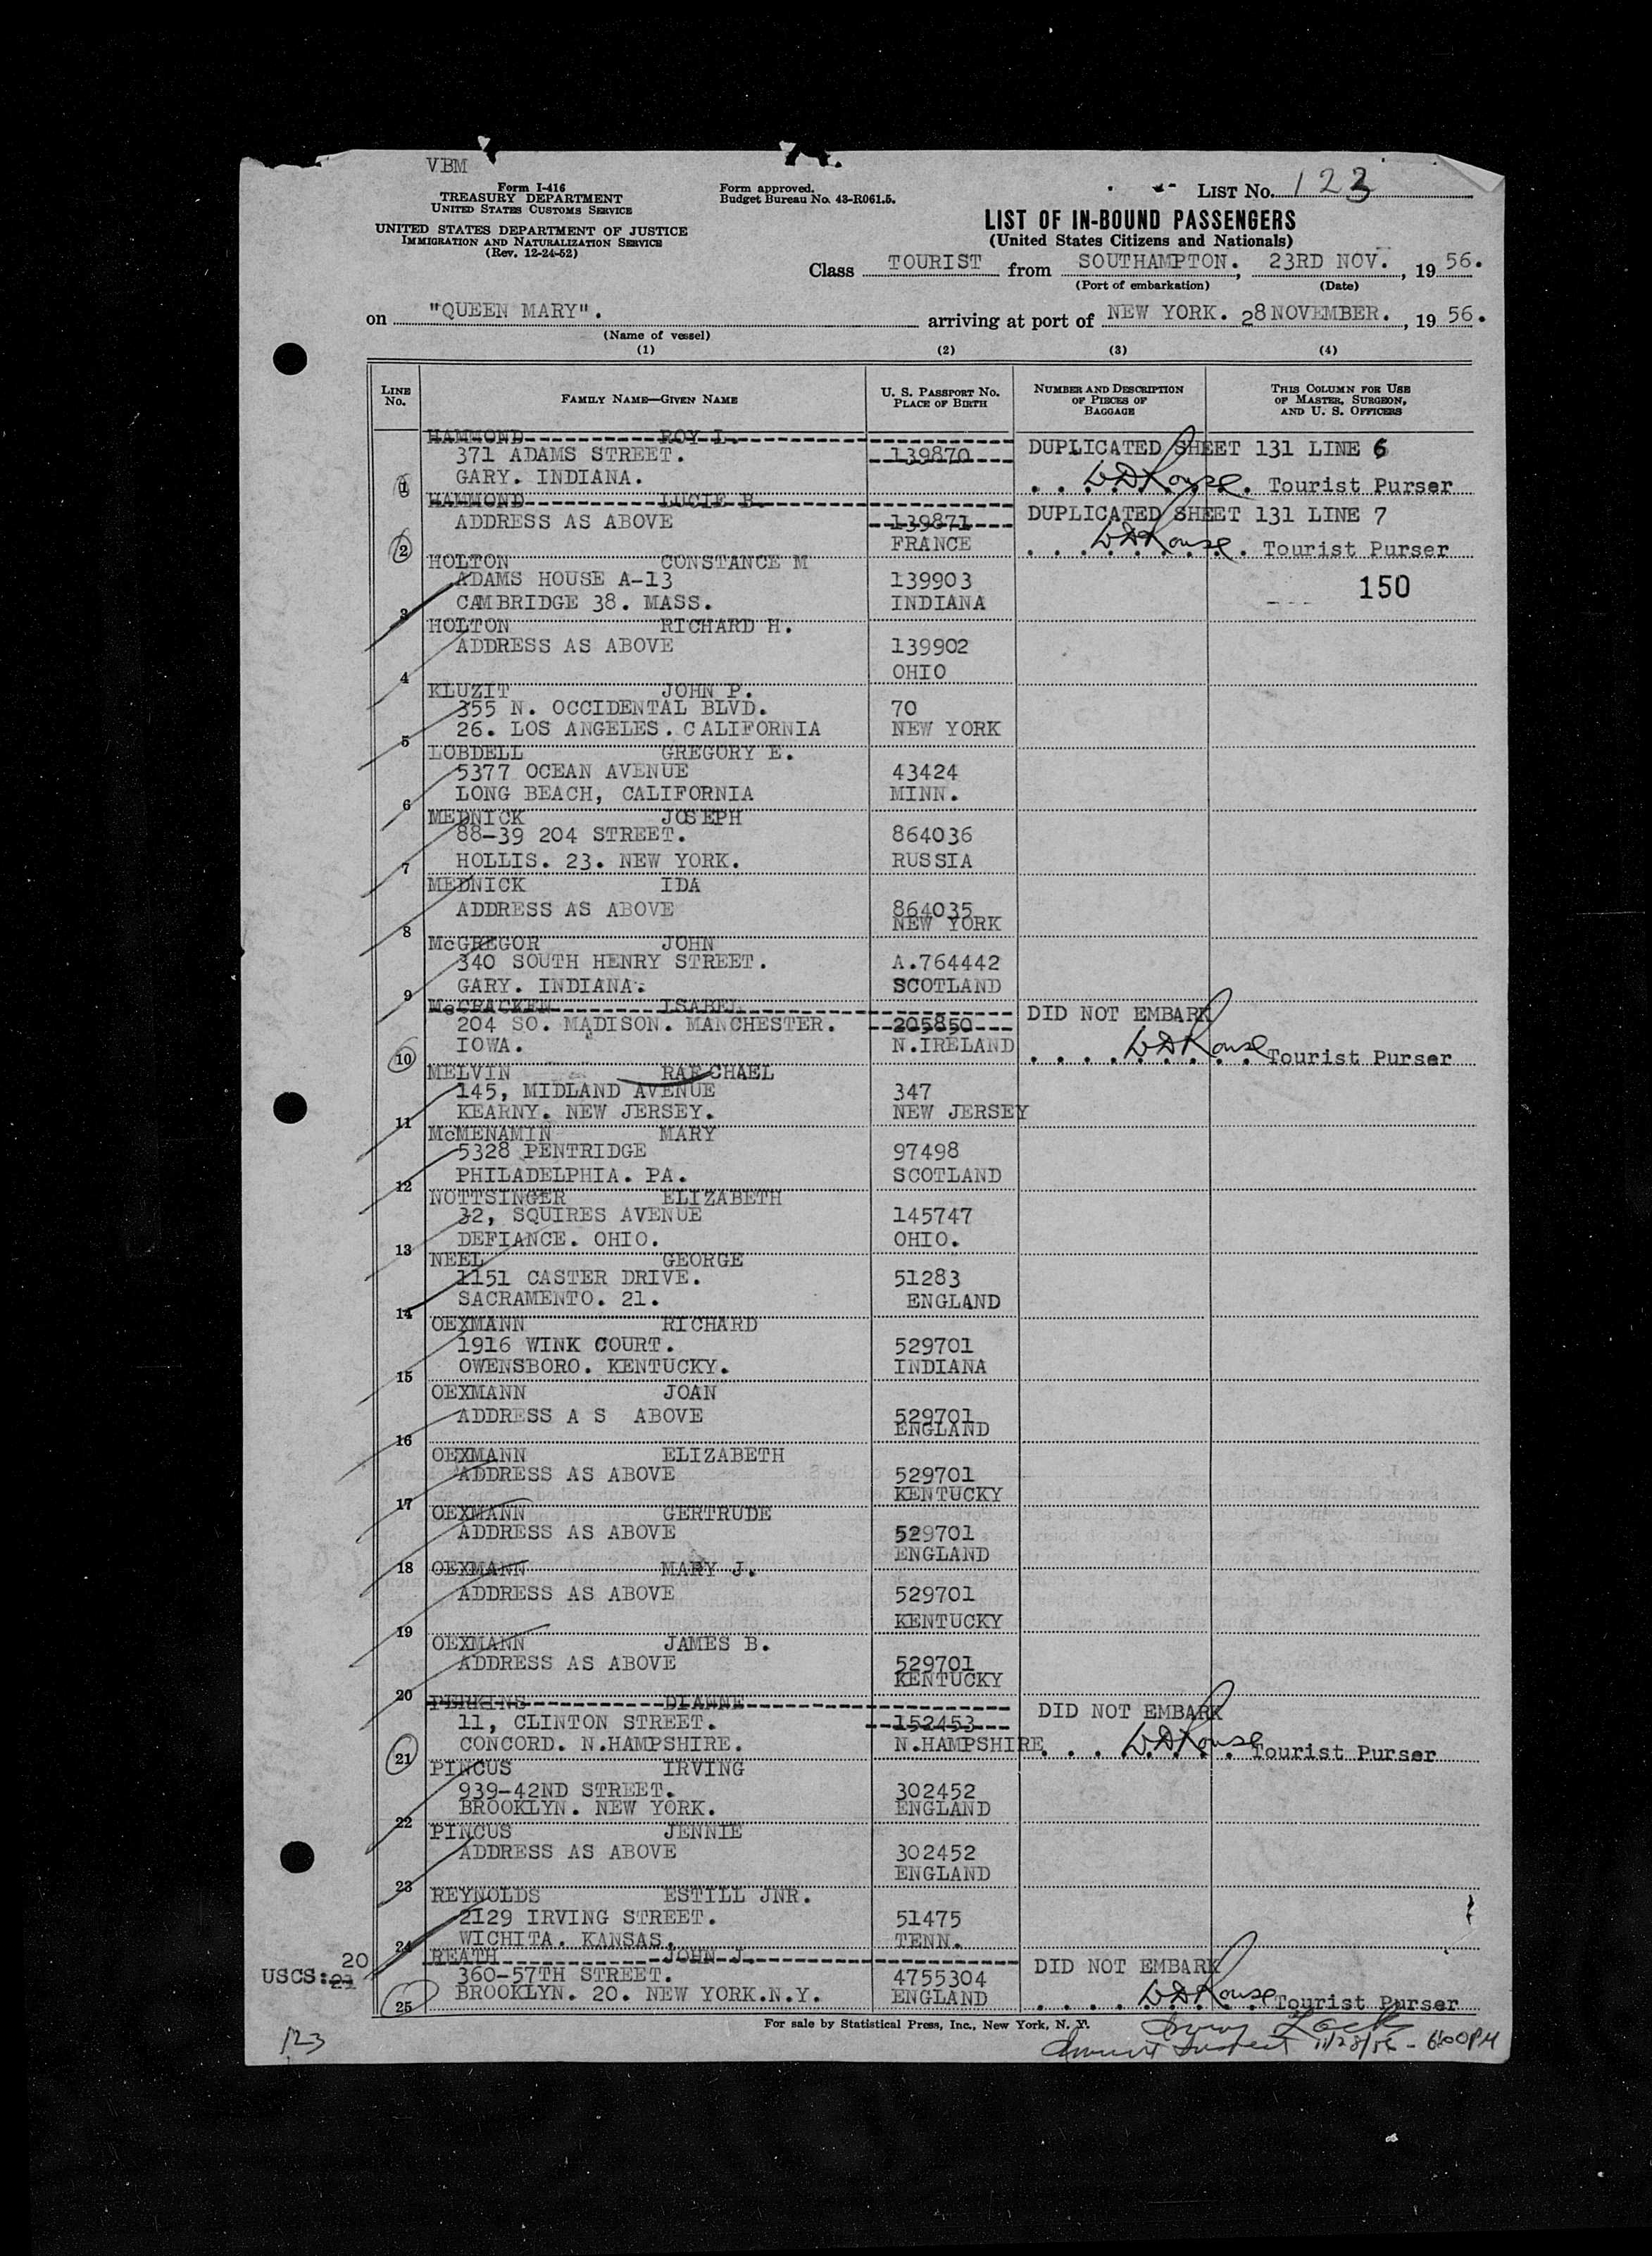 VBM
Form I-416
TREASURY DEPARTMENT
UNITED STATES CUSTOMS SERVICE
UNITED STATES DEPARTMENT OF JUSTICE
IMMIGRATION AND NATURALIZATION SERVICE
(Rev. 12-24-52)
Form approved.
Budget Bureau No. 43-R061.5.
LIST No. 123
LIST OF IN-BOUND PASSENGERS
(United States Citizens and Nationals)
Class TOURIST from SOUTHAMPTON., 23RD NOV., 1956.
(Port of embarkation) (Date)
on "QUEEN MARY". arriving at port of NEW YORK. 28 NOVEMBER., 1956.
(Name of vessel)
(1) (2) (3) (4)
LINE No. FAMILY NAME—GIVEN NAME U. S. PASSPORT No. PLACE OF BIRTH NUMBER AND DESCRIPTION OF PIECES OF BAGGAGE THIS COLUMN FOR USE OF MASTER, SURGEON, AND U. S. OFFICERS
HAMMOND ROY L. DUPLICATED SHEET 131 LINE 6
371 ADAMS STREET. 139870
1 GARY. INDIANA. WDRouse. Tourist Purser
HAMMOND LUCIE B. DUPLICATED SHEET 131 LINE 7
ADDRESS AS ABOVE 139871
2 FRANCE WDRouse. Tourist Purser
HOLTON CONSTANCE M
ADAMS HOUSE A-13 139903 150
3 CAMBRIDGE 38. MASS. INDIANA
HOLTON RICHARD H.
ADDRESS AS ABOVE 139902
4 OHIO
KLUZIT JOHN P.
355 N. OCCIDENTAL BLVD. 70
5 26. LOS ANGELES. CALIFORNIA NEW YORK
LOBDELL GREGORY E.
5377 OCEAN AVENUE 43424
6 LONG BEACH, CALIFORNIA MINN.
MEDNICK JOSEPH
88-39 204 STREET. 864036
7 HOLLIS. 23. NEW YORK. RUSSIA
MEDNICK IDA
ADDRESS AS ABOVE 864035
8 NEW YORK
McGREGOR JOHN
340 SOUTH HENRY STREET. A.764442
9 GARY. INDIANA. SCOTLAND
McCRACKEN ISABEL DID NOT EMBARK
204 SO. MADISON. MANCHESTER. 205850
10 IOWA. N.IRELAND WDRouse Tourist Purser
MELVIN RAECHAEL
145, MIDLAND AVENUE 347
11 KEARNY. NEW JERSEY. NEW JERSEY
McMENAMIN MARY
5328 PENTRIDGE 97498
12 PHILADELPHIA. PA. SCOTLAND
NOTTSINGER ELIZABETH
32, SQUIRES AVENUE 145747
13 DEFIANCE. OHIO. OHIO.
NEEL GEORGE
1151 CASTER DRIVE. 51283
14 SACRAMENTO. 21. ENGLAND
OEXMANN RICHARD
1916 WINK COURT. 529701
15 OWENSBORO. KENTUCKY. INDIANA
OEXMANN JOAN
ADDRESS A S ABOVE 529701
16 ENGLAND
OEXMANN ELIZABETH
ADDRESS AS ABOVE 529701
17 KENTUCKY
OEXMANN GERTRUDE
ADDRESS AS ABOVE 529701
ENGLAND
18 OEXMANN MARY J.
ADDRESS AS ABOVE 529701
19 KENTUCKY
OEXMANN JAMES B.
ADDRESS AS ABOVE 529701
20 KENTUCKY
PERKINS DIANNE DID NOT EMBARK
11, CLINTON STREET. 152453
21 CONCORD. N.HAMPSHIRE. N.HAMPSHIRE. WDRouse Tourist Purser
PINCUS IRVING
939-42ND STREET. 302452
22 BROOKLYN. NEW YORK. ENGLAND
PINCUS JENNIE
ADDRESS AS ABOVE 302452
23 ENGLAND
REYNOLDS ESTILL JNR.
2129 IRVING STREET. 51475
24 WICHITA. KANSAS. TENN.
REATH JOHN J. DID NOT EMBARK
20
USCS: 21 360-57TH STREET. 4755304
25 BROOKLYN. 20. NEW YORK.N.Y. ENGLAND WDRouse Tourist Purser
For sale by Statistical Press, Inc., New York, N. Y.
123 11/28/56 - 6:00PM